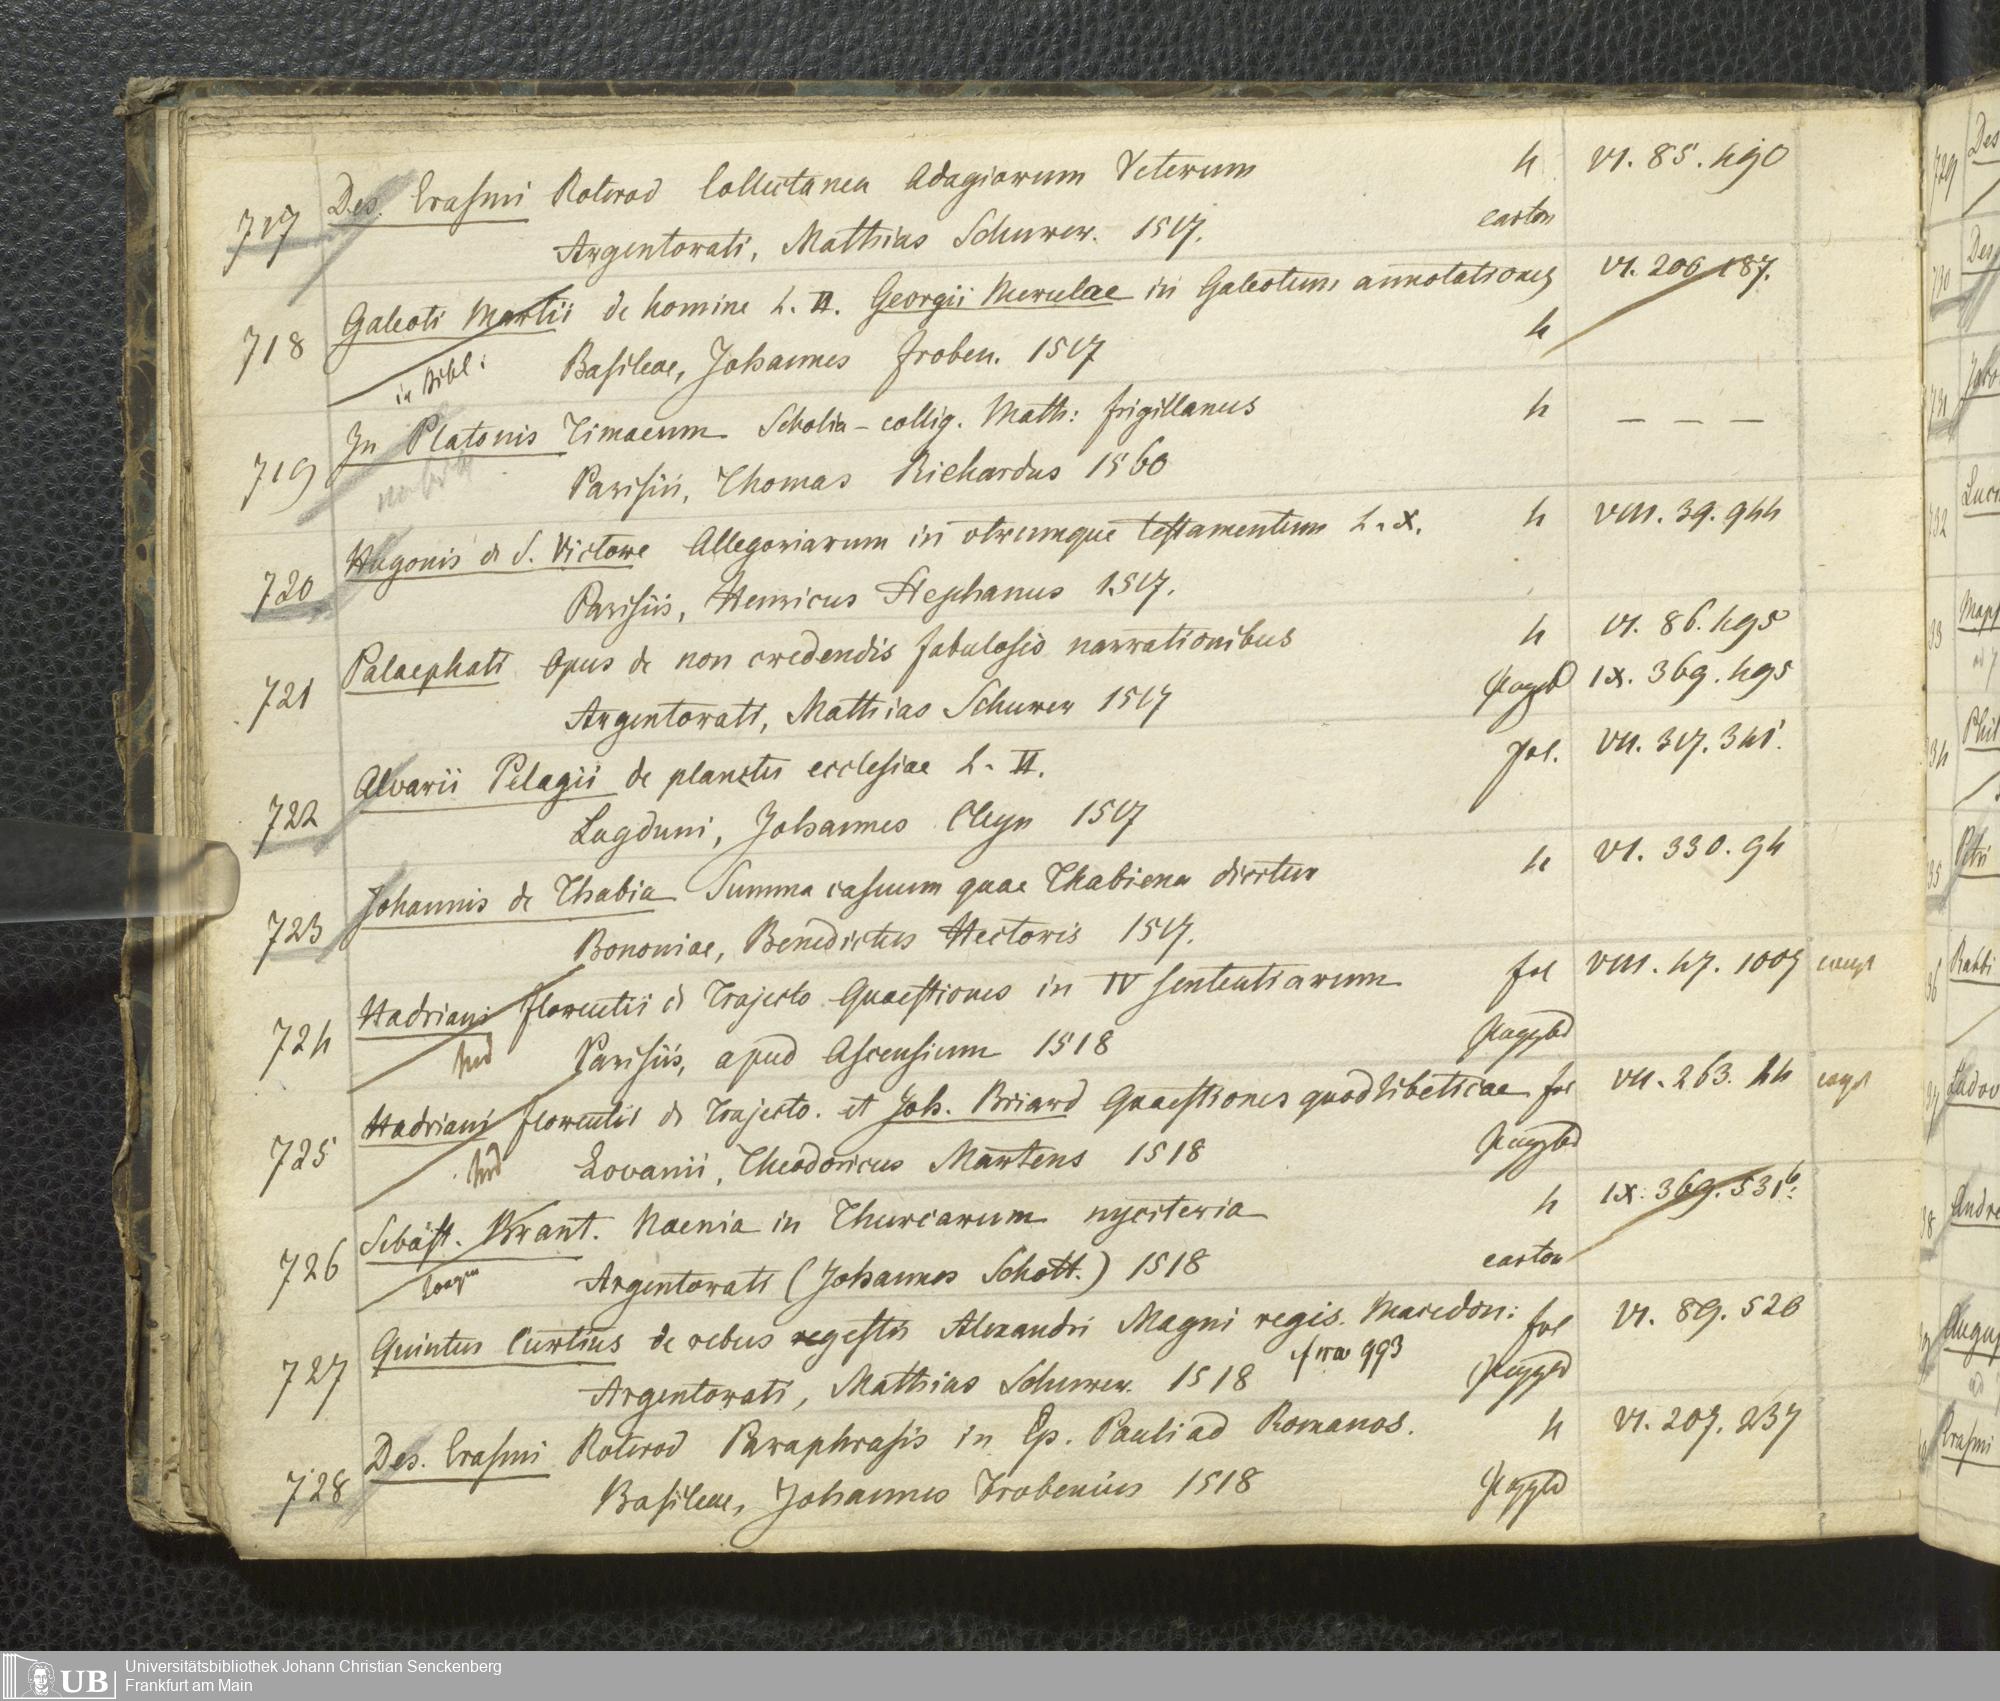 717 Des. Erasmi Roterod Collectanea Adagiorum Veterum 4 VI. 85. 490
Argentorati, Mathias Schurer. 1517. carton
718 Galeoti Martii de homine L. II. Georgii Merulae in Galeotum annotationes VI. 206 187.
in bibl: Basileae, Johannes Froben. 1517 4
719 In Platonis Timaeum Scholia – collig. Math: frigillanus 4 – – –
Parisiis, Thomas Richardus 1560
720 Hugonis de S. Victore Allegoriarum in utrumque testamentum L. X. 4 VIII. 39. 944
Parisiis, Henricus Stephanus 1517.
721 Palaephati Opus de non credendis fabulosis narrationibus 4 VI. 86. 495
Argentorati, Mathias Schurer 1517 IX. 369. 495
722 Alvarii Pelagii de planctu ecclesiae L. II. fol. VII. 317. 341.
Lugduni, Johannes Cleyn 1517
723 Johannis de Thabia Summa casuum quae Thabiena dicitur 4 VI. 330. 94
Bononiae, Benedictus Hectoris 1517.
724 Hadriani florentii de Trajecto Quaestiones in IV sententiarum fol VIII. 47. 1007
Parisiis, apud Ascensium 1518
725 Hadriani florentii de Trajecto. et Joh. Briard Quaestiones quodlibeticae fol VII. 263. 44
Lovanii, Theodoricus Martens 1518
726 Sebast. Brant. Naenia in Thurcarum nyciteria 4 IX. 369. 531b.
Argentorati (Johannes Schott.) 1518 carton
727 Quintus Curtius de rebus regestis Alexandri Magni regis. Macedon: fol VI. 89. 526
Argentorati, Mathias Schurer. 1518 993
728 Des. Erasmi Roterod Paraphrasis in Ep. Pauli ad Romanos. 4 VI. 207. 237
Basileae, Johannes Frobenius 1518
729 Des
730 Des
731
732
Phil
Petri
Rabbi
Ludov
Andre
Erasmi
UB Universitätsbibliothek Johann Christian Senckenberg
Frankfurt am Main